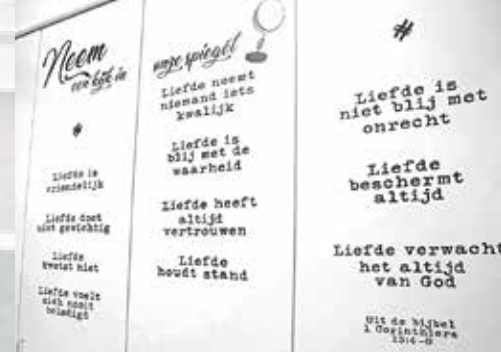 Neem
een kijk in
#
Liefde is
vriendelijk
Liefde doet
niet gewichtig
Liefde
kwetst niet
Liefde voelt
zich nooit
beledigd
onze spiegel
Liefde neemt
niemand iets
kwalijk
Liefde is
blij met de
waarheid
Liefde heeft
altijd
vertrouwen
Liefde
houdt stand
#
Liefde is
niet blij met
onrecht
Liefde
beschermt
altijd
Liefde verwacht
het altijd
van God
Uit de bijbel
1 Corinthiers
13:4-8